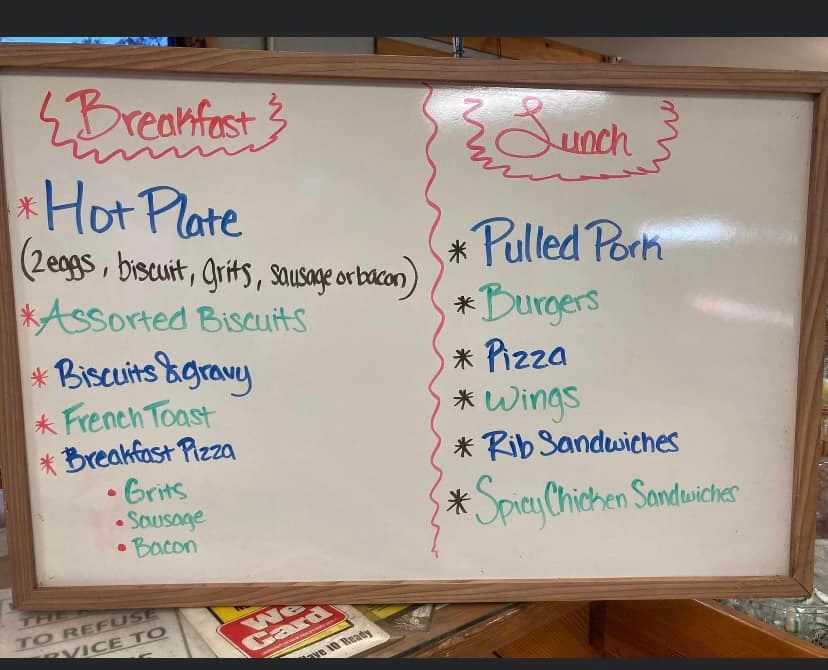 Breakfast
* Hot Plate
(2 eggs, biscuit, grits, sausage or bacon)
* Assorted Biscuits
* Biscuits & gravy
* French Toast
* Breakfast Pizza
• Grits
• Sausage
• Bacon
Lunch
* Pulled Pork
* Burgers
* Pizza
* Wings
* Rib Sandwiches
* Spicy Chicken Sandwiches
TO REFUSE
VICE TO
We
Card
ID Ready